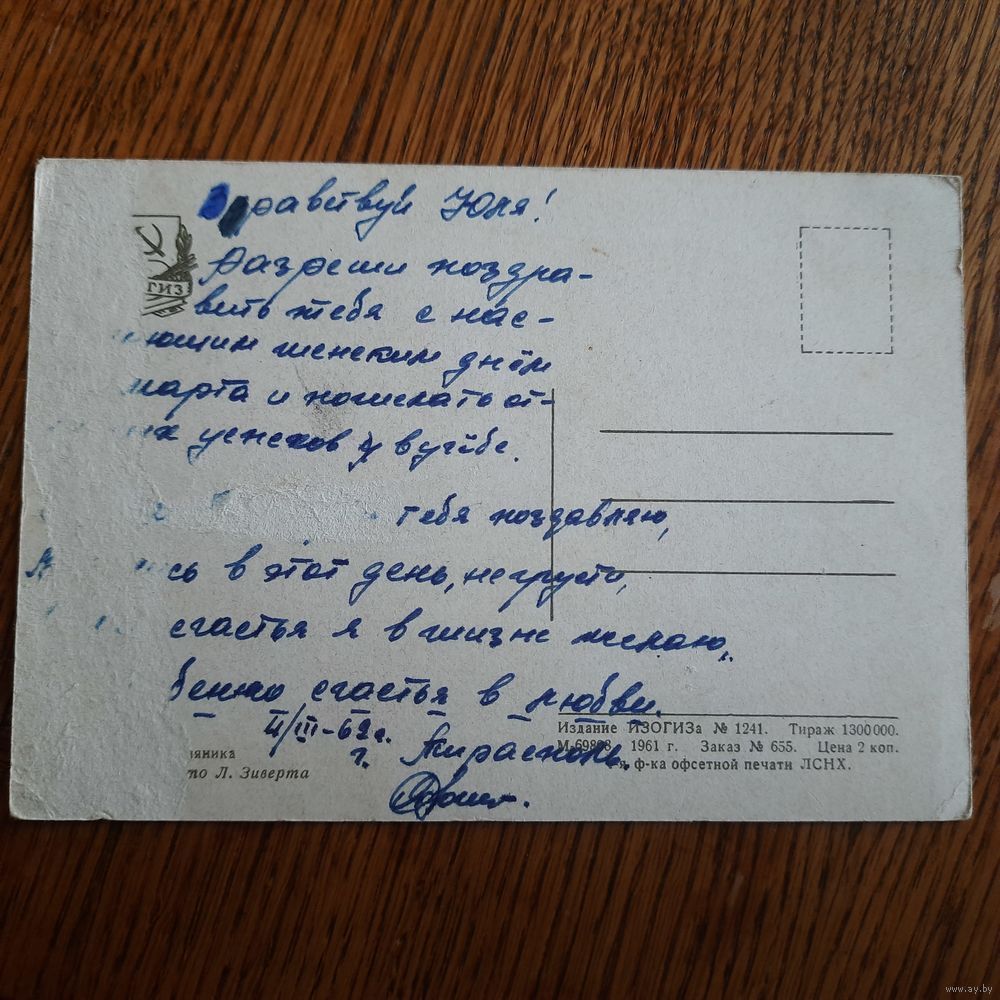 Здравствуй Юля!
Разреши поздра-
вить тебя с нас-
ющим женским днём
марта и пожелать от-
ых успехов в учёбе.
тебя поздавляю,
сь в этот день, не грусти,
счастья я в жизне желаю,
бенно счастья в любви.
4/III-62г.
г. Тирасполь.
ГИЗ
яника
то Л. Зиверта
Издание ИЗОГИЗа № 1241. Тираж 1300000.
1961 г. Заказ № 655. Цена 2 коп.
я ф-ка офсетной печати ЛСНХ.
www.ay.by